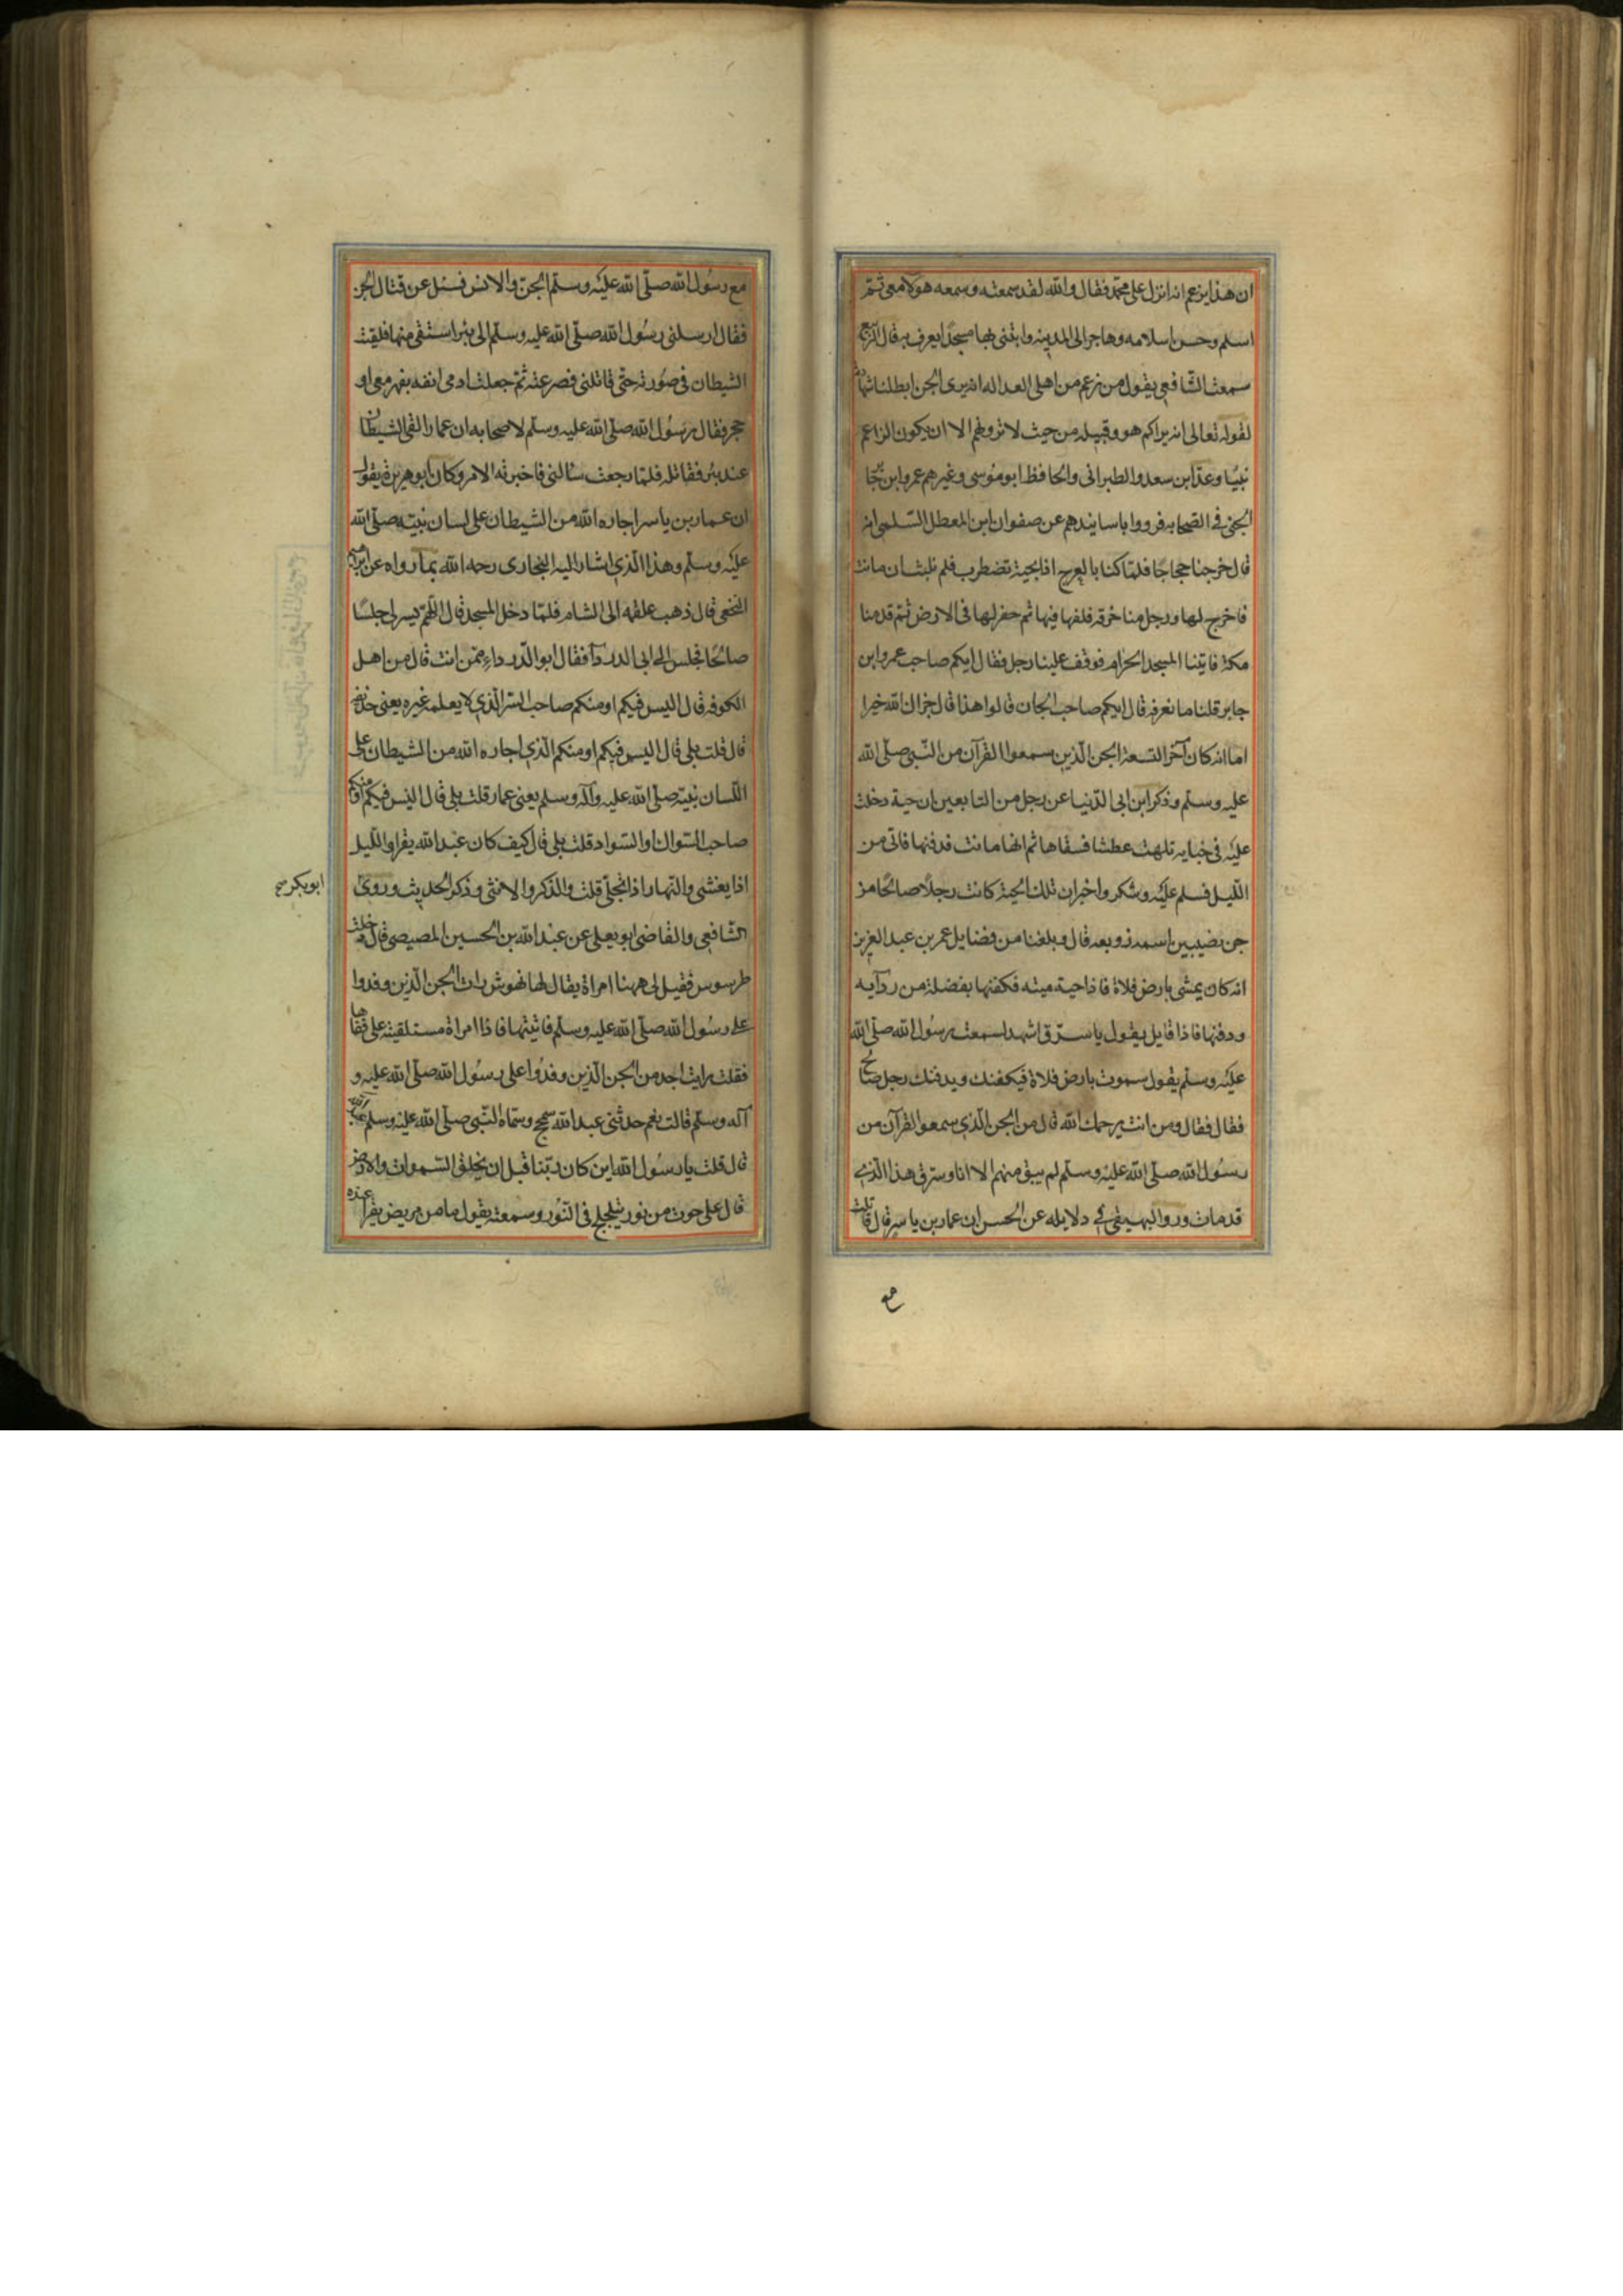 ان هذا يزعم انه انزل على محمد فقال والله لقد سمعته وسمعه هولا معى ثم
اسلم وحسن اسلامه وهاجر الى المدينه وابتنى بها مسجدا يعرف به قال الربيع
سمعت الشافعى يقول من زعم من اهل العداله انه يرى الجن ابطلنا شهادته
لقوله تعالى انه يراكم هو وقبيله من حيث لا ترونهم الا ان يكون الزاعم
نبيّا وعدّ ابن سعد والطبرانى والحافظ ابو موسى وغيرهم عمرو ابن جابر
الجنى فى الصحابه فرووا باسانيدهم عن صفوان ابن المعطل السلمى انه
قال خرجنا حجاجا فلما كنا بالعرج اذا بحية تضطرب فلم تلبث ان ماتت
فاخرج لها رجل منا خرقه فلفها فيها ثم حفر لها فى الارض ثم قدمنا
مكة فاتينا المسجد الحرام فوقف علينا رجل فقال ايكم صاحب عمرو ابن
جابر قلنا ما نعرفه قال ايكم صاحب الجان قالوا هذا قال جزاك الله خيرا
اما انه كان آخر التسعة الجن الّذين سمعوا القرآن من النّبى صلّى الله
عليه وسلم وذكر ابن ابى الدّنيا عن رجل من التابعين ان حية دخلت
عليه فى خبايه تلهث عطشا فسقاها ثم انها ماتت فدفنها فاتى من
اللّيل فسلم عليه وشكر واخبر ان تلك الحية كانت رجلا صالحا من
جن نصيبين اسمه زوبعه قال وبلغنا من فضايل عمر بن عبد العزيز
انه كان يمشى بارض فلاة فاذا حية ميته فكفنها بفضلة من ردآيه
ودفنها فاذا قايل يقول يا سرّق اشهد لسمعت رسول الله صلّى الله
عليه وسلم يقول ستموت بارض فلاة فيكفنك ويدفنك رجل صالح
فقال ومن انت يرحمك الله قال من الجن الّذى سمعوا القرآن من
رسول الله صلّى الله عليه وسلم لم يبق منهم الا انا وسرق هذا الّذى
قد مات وروا البهيقى فى دلايله عن الحسن ان عمار بن ياسر قال قاتلت
مع
مع رسول الله صلّى الله عليه وسلم الجنّ والانس فسئل عن قتال الجن
فقال ارسلنى رسول الله صلّى الله عليه وسلم الى بئر استقى منها فلقيت
الشيطان فى صورته حتّى قاتلنى فصرعته ثم جعلت ادمى انفه بفهر معى او
حجر فقال رسول الله صلّى الله عليه وسلم لاصحابه ان عمارا لقى الشيطان
عند بئر فقاتله فلما رجعت سالنى فاخبرته الامر وكان ابو هريرة يقول
ان عمار بن ياسر اجاره الله من الشيطان على لسان نبيّه صلّى الله
عليه وسلم وهذا الّذى اشار اليه البخارى رحمه الله بما رواه عن ابرهيم
النخعى قال ذهب علقمه الى الشام فلما دخل المسجد قال اللّهمّ يسر لى جلسا
صالحا فجلس الى ابى الدردآ فقال ابو الدّرداء ممن انت قال من اهل
الكوفه قال اليس فيكم او منكم صاحب السّر الّذى لا يعلمه غيره يعنى حذيفه
قال قلت بلى قال اليس فيكم او منكم الّذى اجاره الله من الشيطان على
اللّسان نبيّه صلّى الله عليه وآله وسلم يعنى عمار قلت بلى قال اليس فيكم او منكم
صاحب السّواك او السّواد قلت بلى قال كيف كان عبد الله يقرا واللّيل
اذا يغشى والنّهار اذا تجلّى قلت والذّكر والانثى وذكر الحديث وروى
ابوبكر صح
الشّافعى والقاضى ابو يعلى عن عبد الله بن الحسين المصيصى قال دخلت
طرسوس فقيل لى ههنا امراة يقال لها نهوش رات الجن الّذين وفدوا
على رسول الله صلّى الله عليه وسلم فاتيتها فاذا امراة مستلقية على قفاها
فقلت رايت احد من الجن الّذين وفدوا على رسول الله صلّى الله عليه و
آله وسلم قالت نعم حدثنى عبد الله سمحج وسمّاه النّبى صلّى الله عليه وسلم عبد الله
قال قلت يا رسول الله اين كان ربّنا قبل ان يخلق السّموات والارض
قال على حوت من نور يتلجلج فى النّور وسمعته يقول ما من مريض يقرا عنده